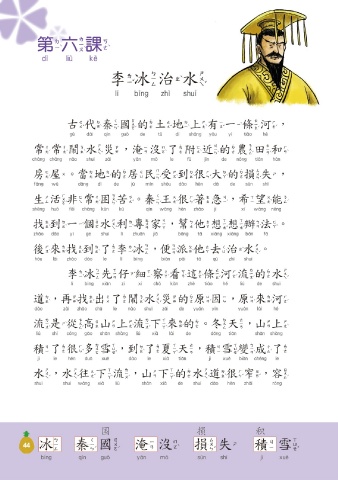 第六課
dì liù kè
李冰治水
lǐ bīng zhì shuǐ
古代秦國的土地上有一條河，
常常鬧水災，淹沒了附近的農田和
房屋。當地的居民受到很大的損失，
生活非常困苦。秦王很著急，希望能
找到一個水利專家，幫他想想辦法。
後來找到了李冰，便派他去治水。
李冰先仔細察看這條河流的水
道，再找出了鬧水災的原因，原來河
流是從高山上流下來的。冬天，山上
積了很多雪，到了夏天，積雪變成了
水，水往下流，山下的水道很窄，容
国 损 积
44 冰 秦國 淹沒 損失 積雪
bīng qín guó yān mò sǔn shī jī xuě